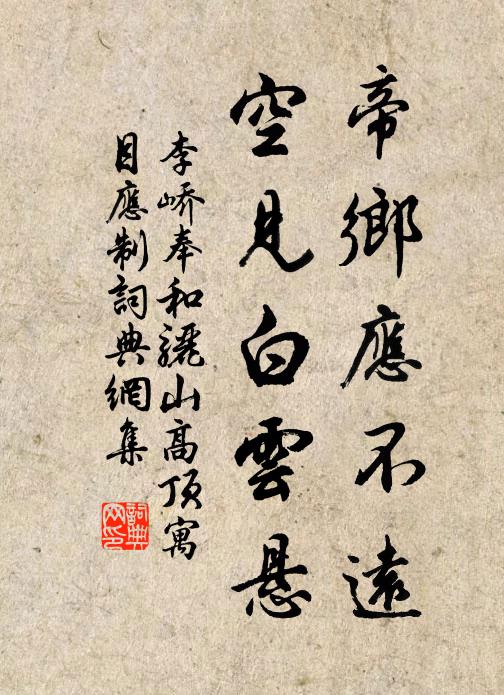 帝鄉應不遠
空見白雲懸
李嶠奉和驪山高頂寓
目應制詞典網集
詞典
网印